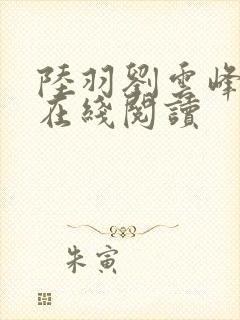 陸羽劉雲峰
在綫閱讀
朱寅